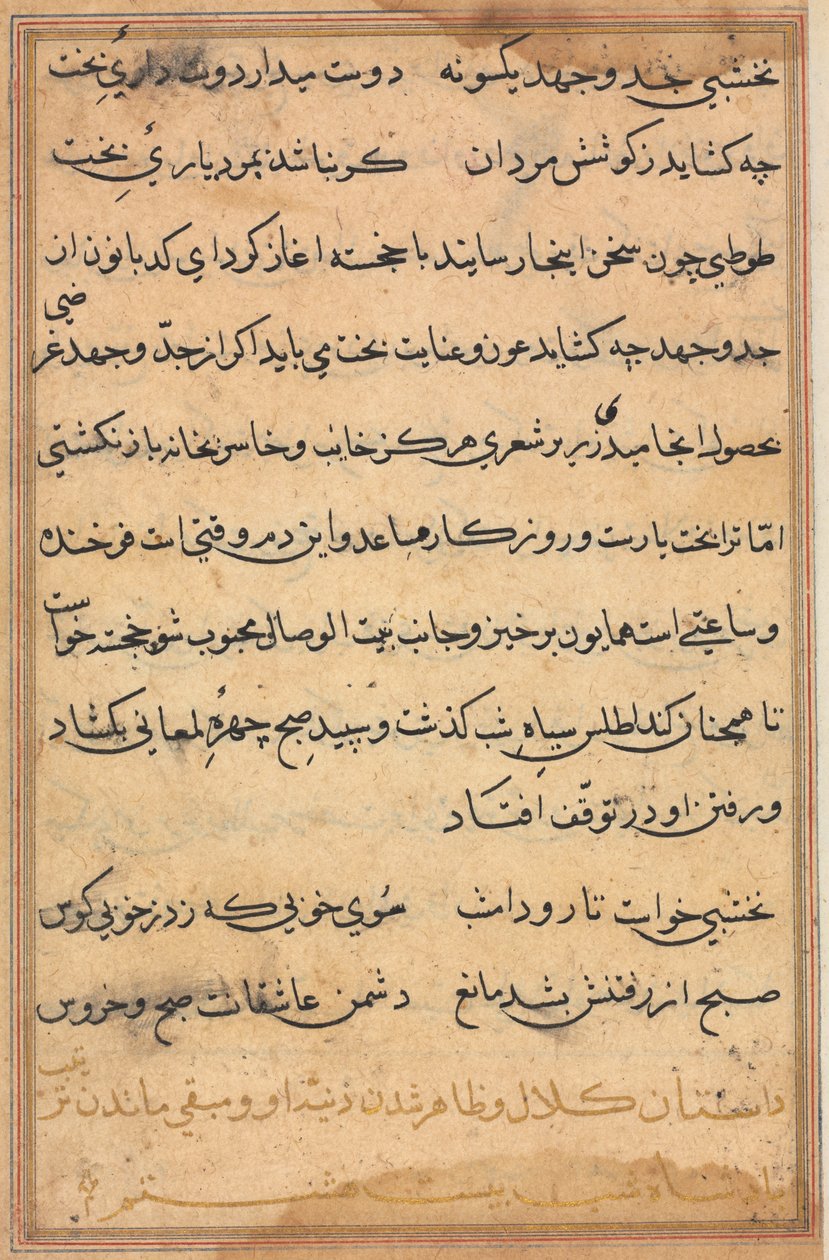 نخشبي جد و جهد يكسو نه دوست ميدار دوستداريِ بخت
چه كشايد ز كوشش مردان كر نباشد بمرد ياريِ بخت
طوطي چون سخن اينجا رسايند با خجسته اغاز كرد اي كدبانون از
جد و جهد چه كشايد عون و عنايت بخت مي بايد اكر از جدّ و جهد غرضي
بحصول انجاميدي زرير بر شعري هركز خايب و خاسر بخانه باز نكشتي
امّا ترا بخت يارست و روزكار مساعد و اين دم وقتي است فرخنده
و ساعتي است همايون برخيز و جانب بيت الوصال محبوب شو خجسته خواست
تا همچنان كند اطلس سياهِ شب كذشت و سپيدِ صبح چهرهٔ لمعاني بكشاد
و رفتن او در توقّف افتاد
نخشبي خواست تا رود امشب سُوي خوبي كه زد ز خوبي كوس
صبح از رفتنش بشد مانع دشمن عاشقانست صبح و خروس
داستان كلال و ظاهر شدن دنيّت او و مبقي ماندن ترتيب
بادشاه شب بيست هشتم